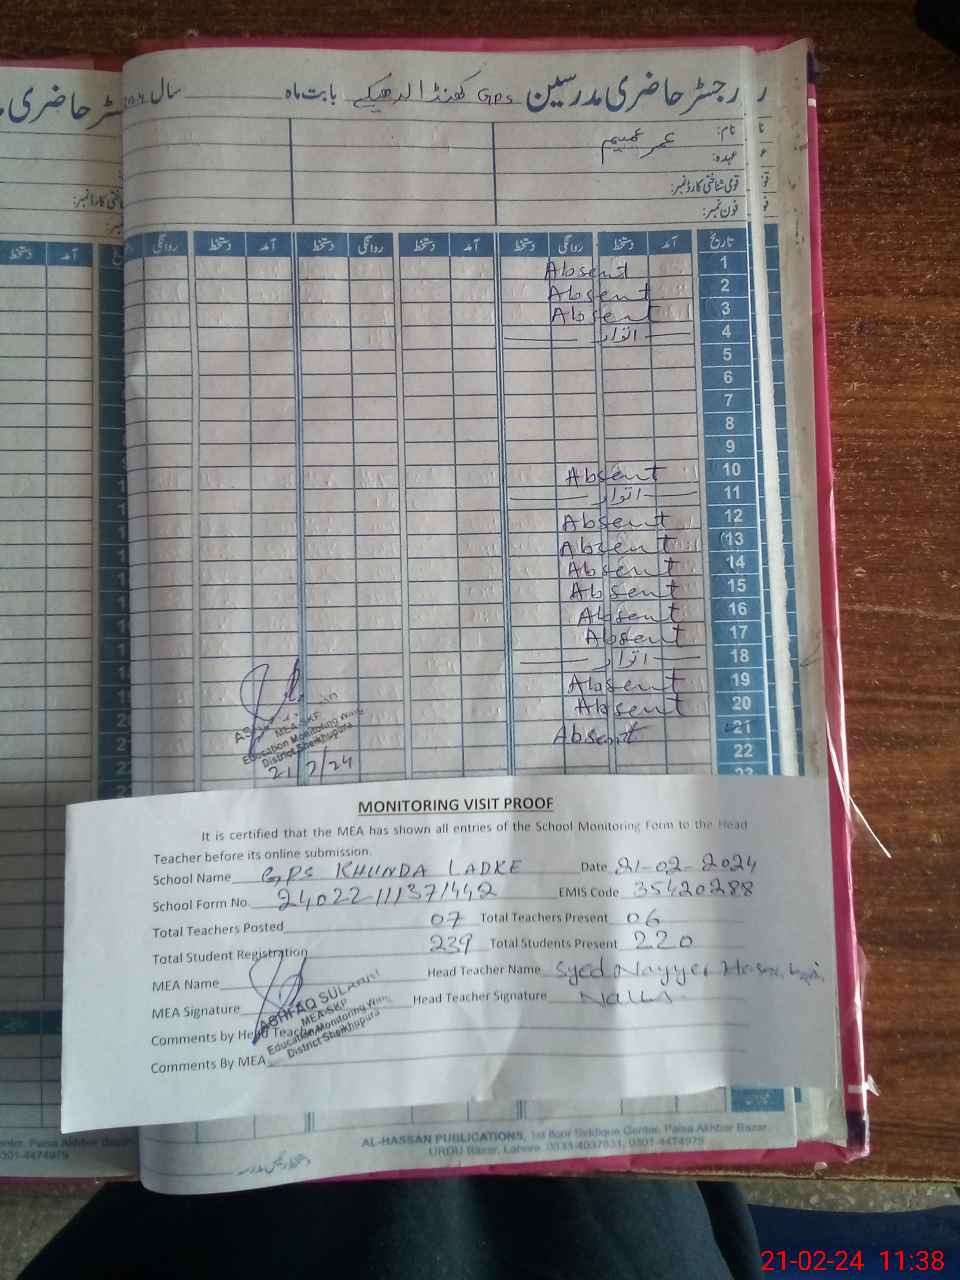 رجسٹر حاضری مدرسین GPS کھنڈا لدھیکے بابت ماہ سال
نام: عمر
عہدہ:
قومی شناختی کارڈ نمبر:
فون نمبر:
تاریخ آمد دستخط روانگی دستخط آمد دستخط روانگی دستخط آمد دستخط روانگی
1 Absent
2 Absent
3 Absent
4 اتوار
5
6
7
8
9
10 Absent
11 اتوار
12 Absent
13 Absent
14 Absent
15 Absent
16 Absent
17 Absent
18 اتوار
19 Absent
20 Absent
21 Absent
22
23
MEA-SKP
Education Monitoring Wing
District Sheikhupura
21/2/24
MONITORING VISIT PROOF
It is certified that the MEA has shown all entries of the School Monitoring Form to the Head
Teacher before its online submission.
School Name GPS KHUNDA LADKE Date 21-02-2024
School Form No. 24022111371442 EMIS Code 35420288
Total Teachers Posted 07 Total Teachers Present 06
Total Student Registration 239 Total Students Present 220
MEA Name Head Teacher Name Syed Nayyer
MEA Signature Head Teacher Signature
ASHFAQ
MEA-SKP
Education Monitoring Wing
District Sheikhupura
Comments by Head Teacher
Comments By MEA
AL-HASSAN PUBLICATIONS, 1st floor Siddique Center, Paisa Akhbar Bazar,
URDU Bazar, Lahore. 0333-4037631, 0301-4474975
دستخط رئیس مدرسہ
21-02-24 11:38